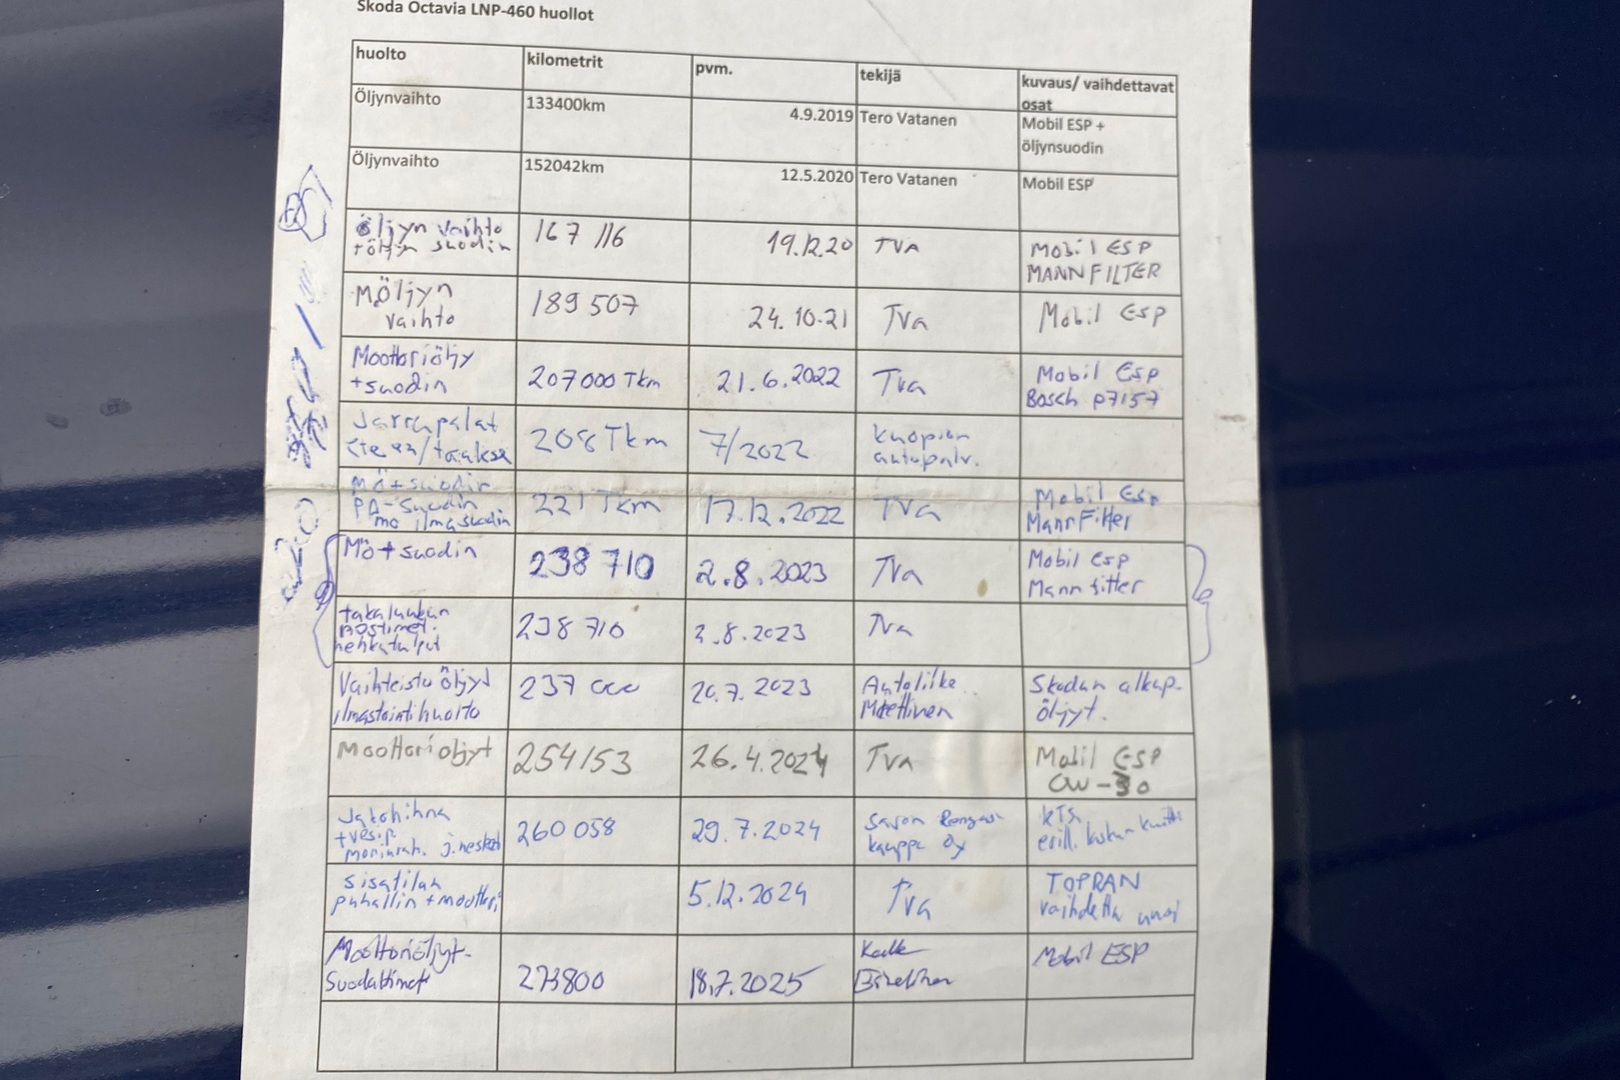 Skoda Octavia LNP-460 huollot
huolto kilometrit pvm. tekijä kuvaus/ vaihdettavat
osat
Öljynvaihto 133400km 4.9.2019 Tero Vatanen Mobil ESP +
öljynsuodin
Öljynvaihto 152042km 12.5.2020 Tero Vatanen Mobil ESP
öljyn vaihto 167 116 19.12.20 TVA Mobil ESP
+öljyn suodin MANNFILTER
Möljyn 189 507 24.10.21 Tva Mobil ESP
vaihto
Moottoriöljy 207000 Tkm 21.6.2022 Tva Mobil Esp
+suodin Bosch p7157
Jarrupalat 208 Tkm 7/2022 Kuopion
eteen/taakse autopalv.
Mö+suodin 221 Tkm 17.12.2022 TVA Mobil Esp
PA-suodin MannFilter
mo ilmasuodin
Mö+suodin 238 710 2.8.2023 Tva Mobil Esp
Mann filter
takaluukun 238 710 2.8.2023 Tva
nostimet.
hehkutulpat
Vaihteistoöljyt 237 000 20.7.2023 Autoliike Skodan alkup.
ilmastointihuolto Miettinen öljyt.
Moottoriöljyt 254153 26.4.2024 Tva Mobil ESP
OW-30
Jakohihna 260 058 29.7.2024 Savon Rengas- kts.
+vesip. kauppa Oy erill. kuitti
moniurah. j.nesteet
Sisätilan 5.12.2024 Tva TOPRAN
puhallin +moottori vaihdettu uusi
Moottoriöljyt- 273800 18.7.2025 Kalle Mobil ESP
Suodattimet